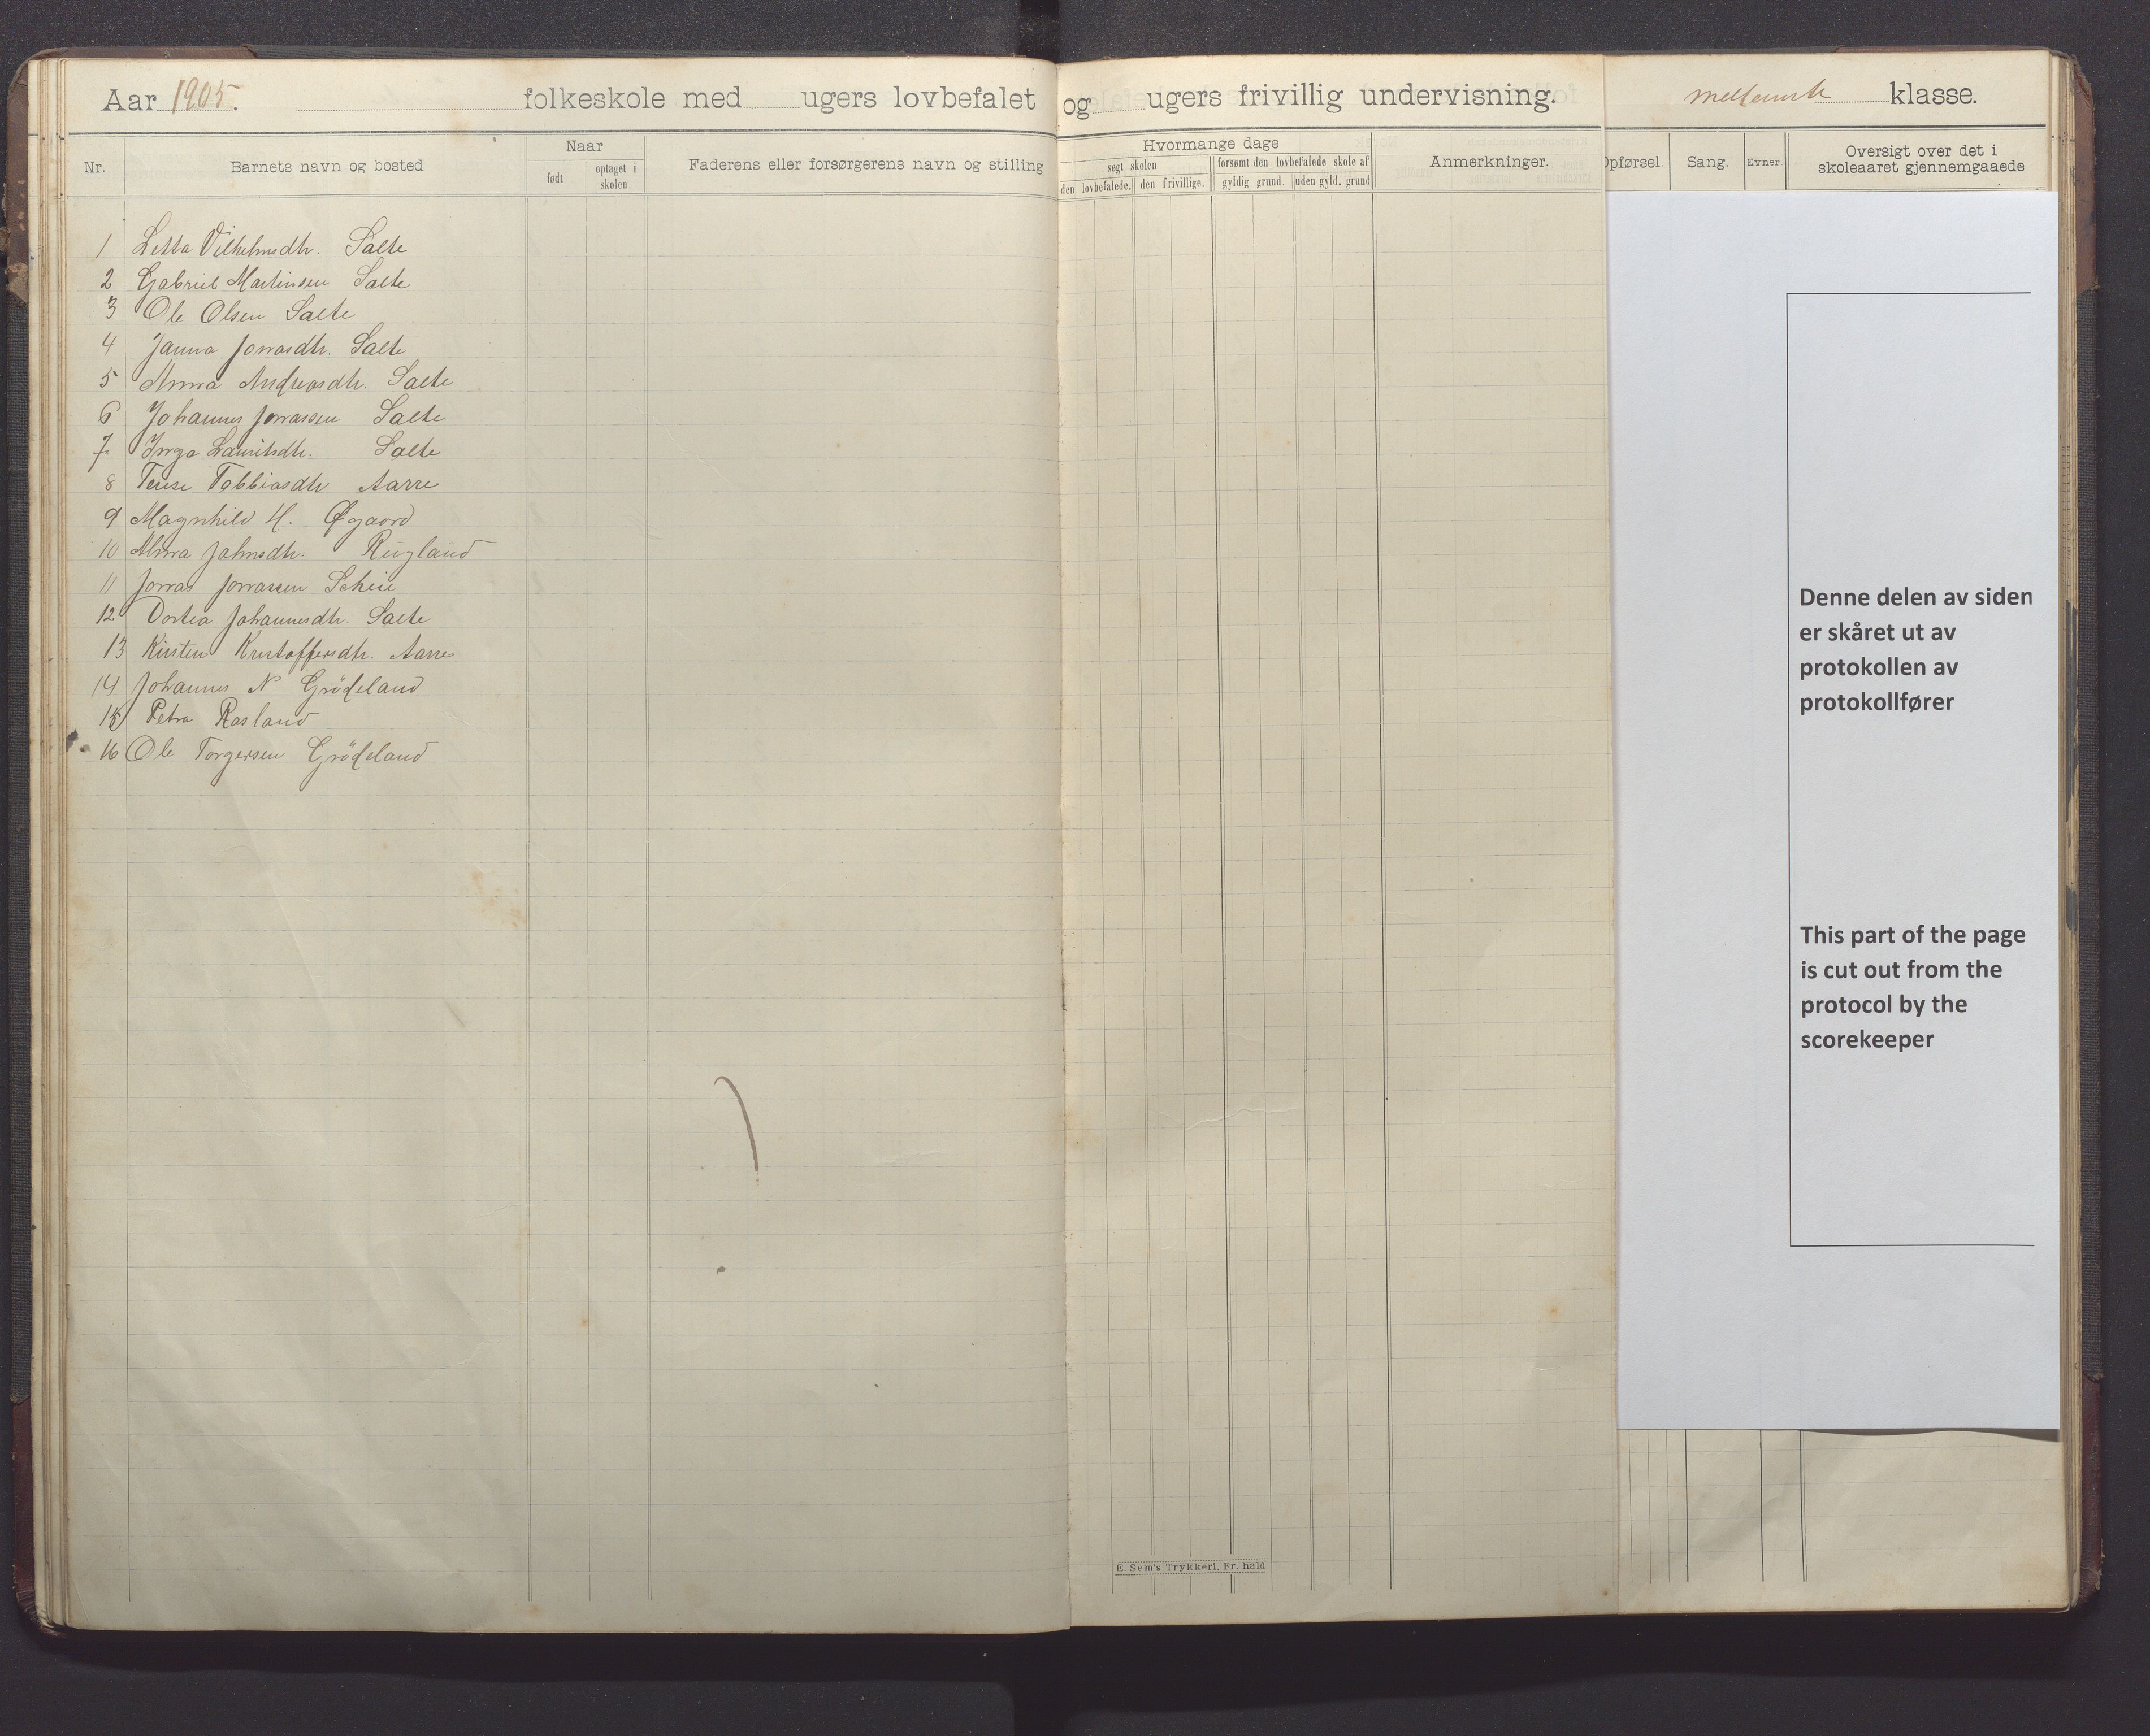 Aar 1905. folkeskole med ugers lovbefalet og ugers frivillig undervisning. klasse.
Nr.
Barnets navn og bosted
Naar
født
optaget i skolen.
Faderens eller forsørgerens navn og stilling
Hvormange dage
søgt skolen
forsømt den lovbefalede skole af
den lovbefalede.
den frivillige.
gyldig grund.
uden gyld. grund
Anmerkninger.
Opførsel.
Sang.
Evner
Oversigt over det i
skoleaaret gjennemgaaede
1 Letta Vilhelmsdtr. Salte
2 Gabriel Martinsen Salte
3 Ole Olsen Salte
4 Janna Jonasdtr. Salte
5 Anna Andreasdtr. Salte
6 Johannes Jonassen Salte
7 Inga Lauritsdtr. Salte
8 Terese Tobbiasdtr Aarre
9 Magnhild H. Øgaard
10 Anna Johnsdtr. Rugland
11 Jonas Jonassen Scheie
12 Dortea Johannesdtr. Salte
13 Kirsten Kristoffersdtr. Aarre
14 Johannes N Grödeland
15 Petra Rasland
16 Ole Torgersen Grödeland
E. Sem's Trykkeri, Fr.hald
Denne delen av siden
er skåret ut av
protokollen av
protokollfører
This part of the page
is cut out from the
protocol by the
scorekeeper